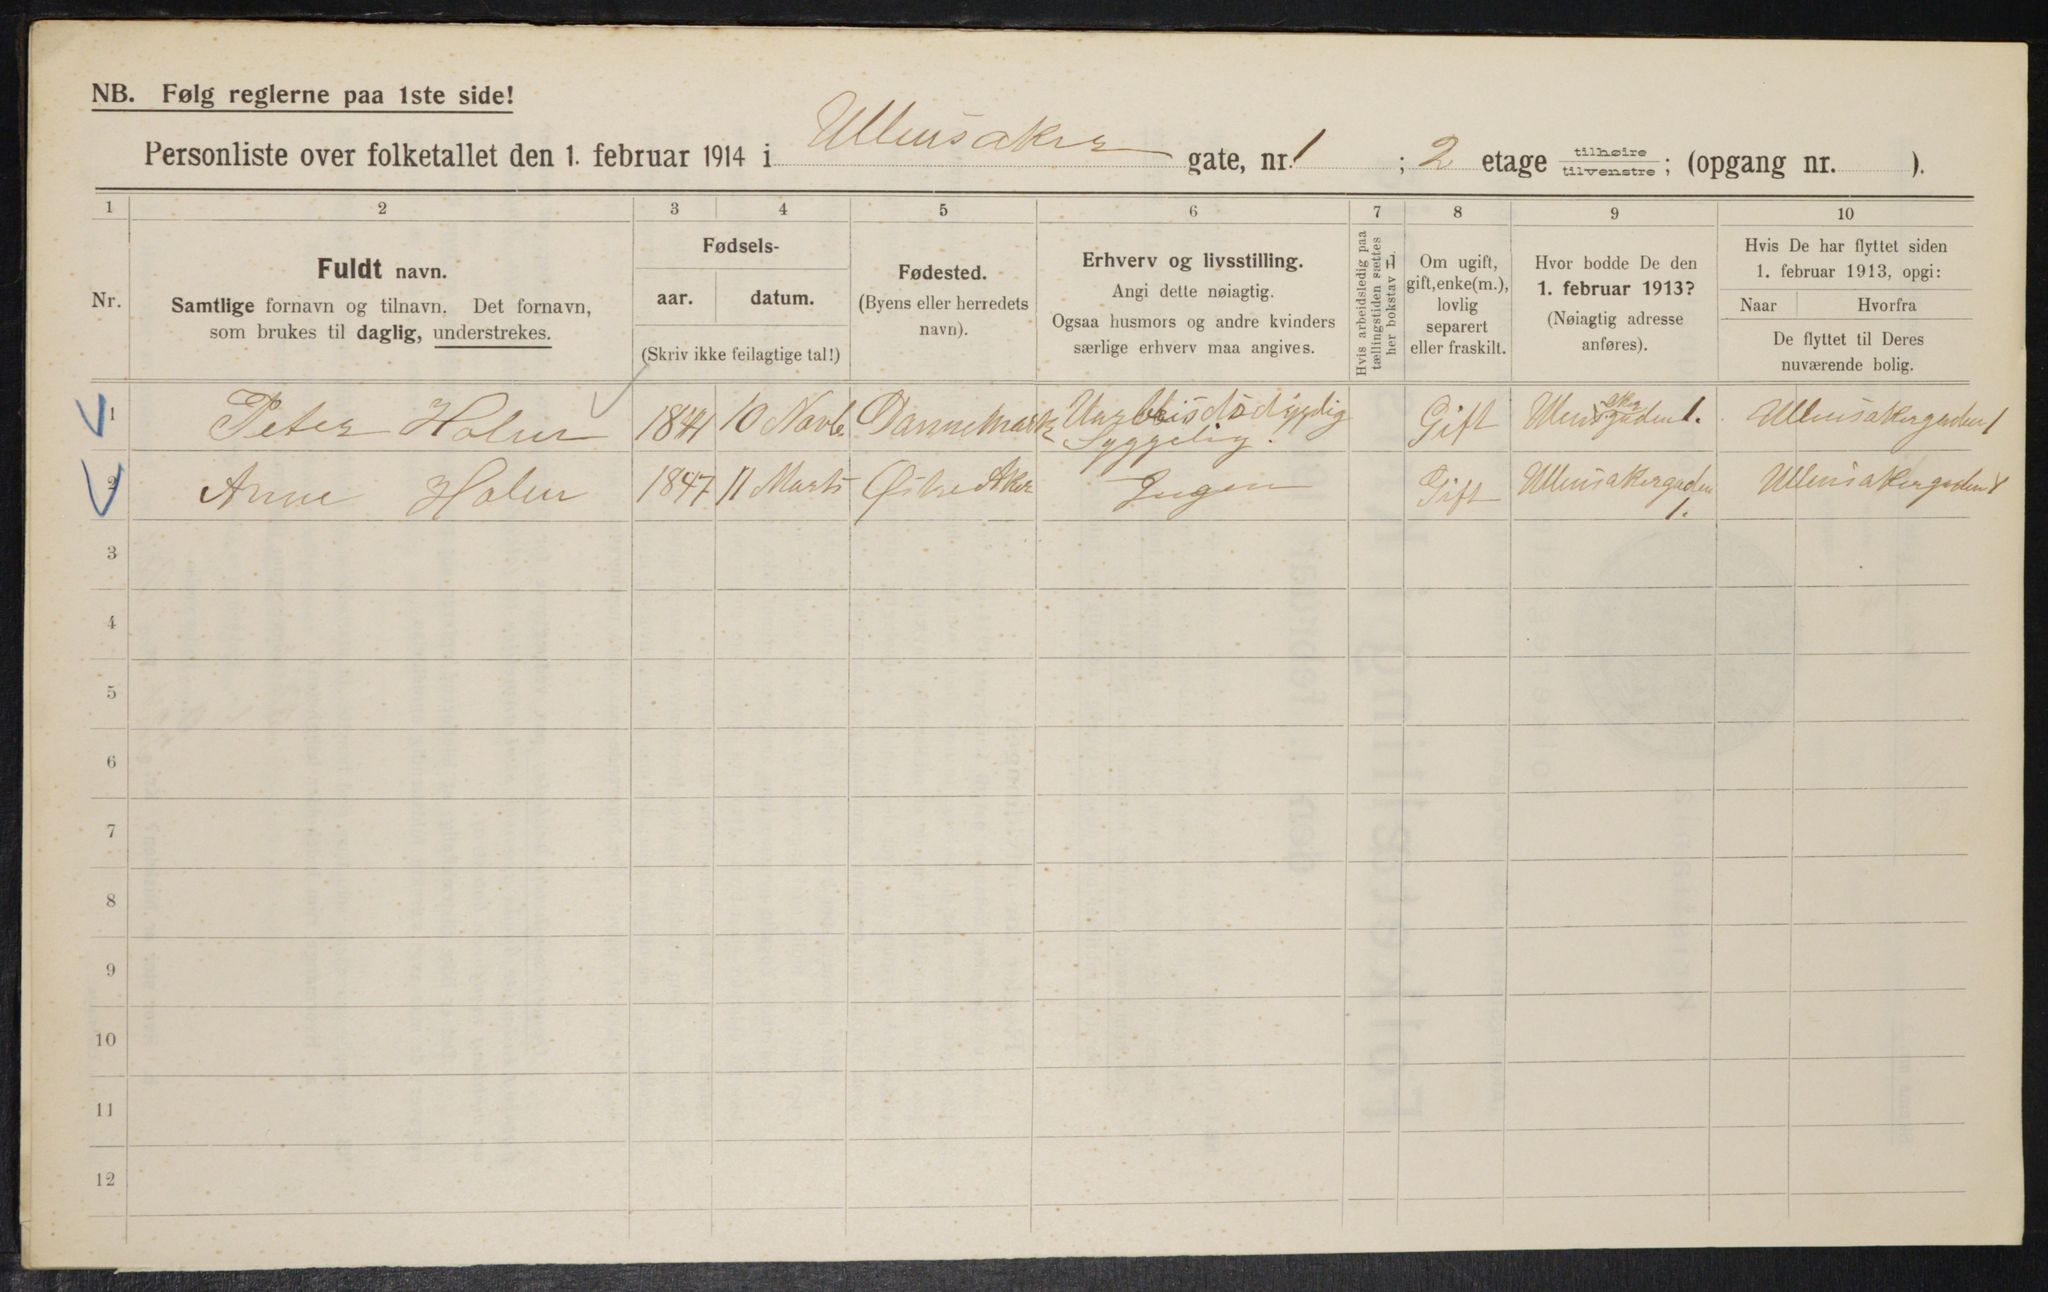 NB. Følg reglerne paa 1ste side!
Personliste over folketallet den 1. februar 1914 i Ullensaker gate, nr. 1 ; 2 etage tilhøire tilvenstre ; (opgang nr. ).
1 2 3 4 5 6 7 8 9 10
Nr.
Fuldt navn.
Samtlige fornavn og tilnavn. Det fornavn,
som brukes til daglig, understrekes.
Fødsels-
aar. datum.
(Skriv ikke feilagtige tal!)
Fødested.
(Byens eller herredets
navn).
Erhverv og livsstilling.
Angi dette nøiagtig.
Ogsaa husmors og andre kvinders
særlige erhverv maa angives.
Hvis arbeidsledig paa
tællingstiden sættes
her bokstav L.
Om ugift,
gift, enke(m.),
lovlig
separert
eller fraskilt.
Hvor bodde De den
1. februar 1913?
(Nøiagtig adresse
anføres).
Hvis De har flyttet siden
1. februar 1913, opgi:
Naar Hvorfra
De flyttet til Deres
nuværende bolig.
1 Peter Holm 1841 10 Novb Dannemark Uarbeisdödygdig Gift Ullensakergaden 1. Ullensakergaden 1
Syggelig.
2 Anne Holm 1847 11 Marts Østre Aker Ingen Gift Ullensakergaden 1. Ullensakergaden 1
3
4
5
6
7
8
9
10
11
12